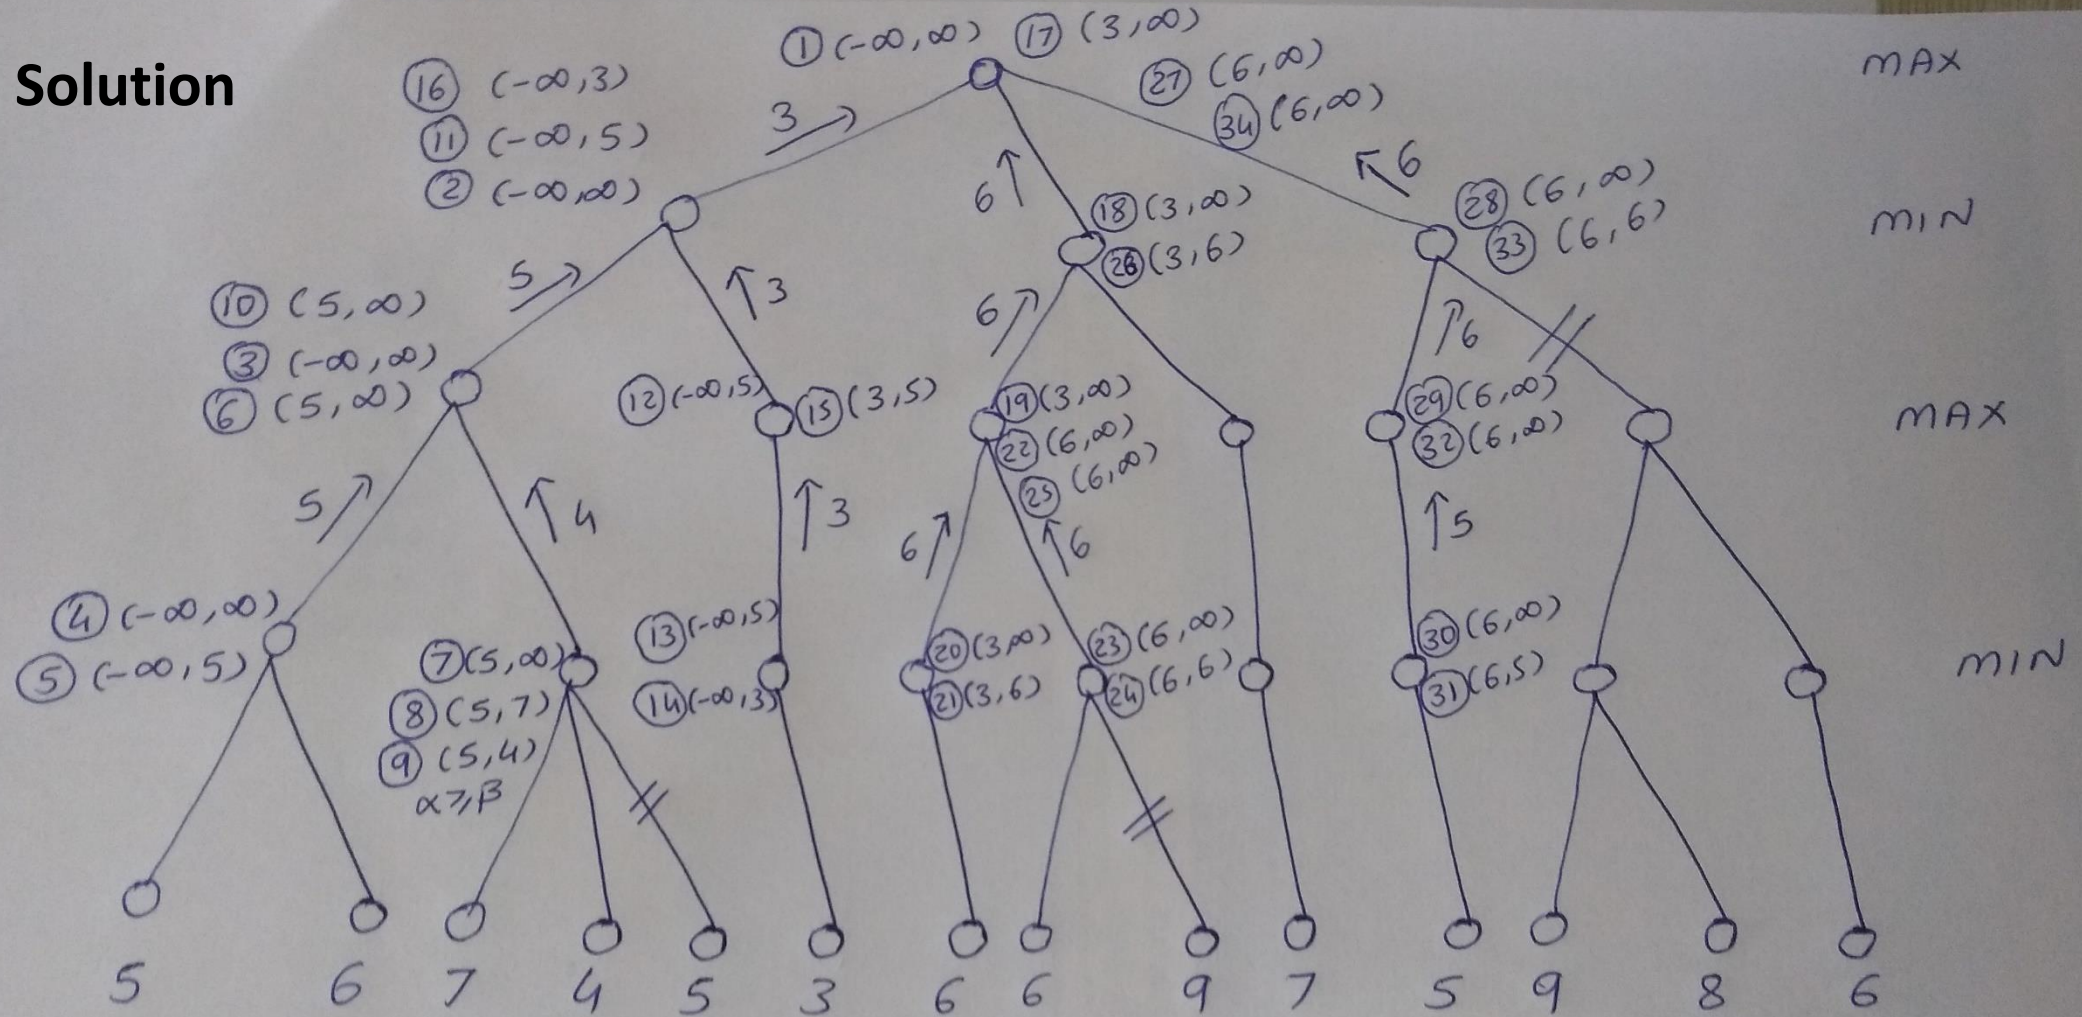 Solution
① (-∞,∞) ⑰ (3,∞)
MAX
⑯ (-∞,3)
㉗ (6,∞)
3
㉞ (6,∞)
⑪ (-∞,5)
② (-∞,∞)
6
6
⑱ (3,∞)
㉖ (3,6)
㉘ (6,∞)
㉝ (6,6)
MIN
5
3
6
6
⑩ (5,∞)
③ (-∞,∞)
⑥ (5,∞)
⑫ (-∞,5) ⑮ (3,5)
⑲ (3,∞)
㉒ (6,∞)
㉕ (6,∞)
㉙ (6,∞)
㉜ (6,∞)
MAX
5
4
3
6
6
5
④ (-∞,∞)
⑤ (-∞,5)
⑦ (5,∞)
⑧ (5,7)
⑨ (5,4)
α≥β
⑬ (-∞,5)
⑭ (-∞,3)
⑳ (3,∞)
㉑ (3,6)
㉓ (6,∞)
㉔ (6,6)
㉚ (6,∞)
㉛ (6,5)
MIN
5 6 7 4 5 3 6 6 9 7 5 9 8 6